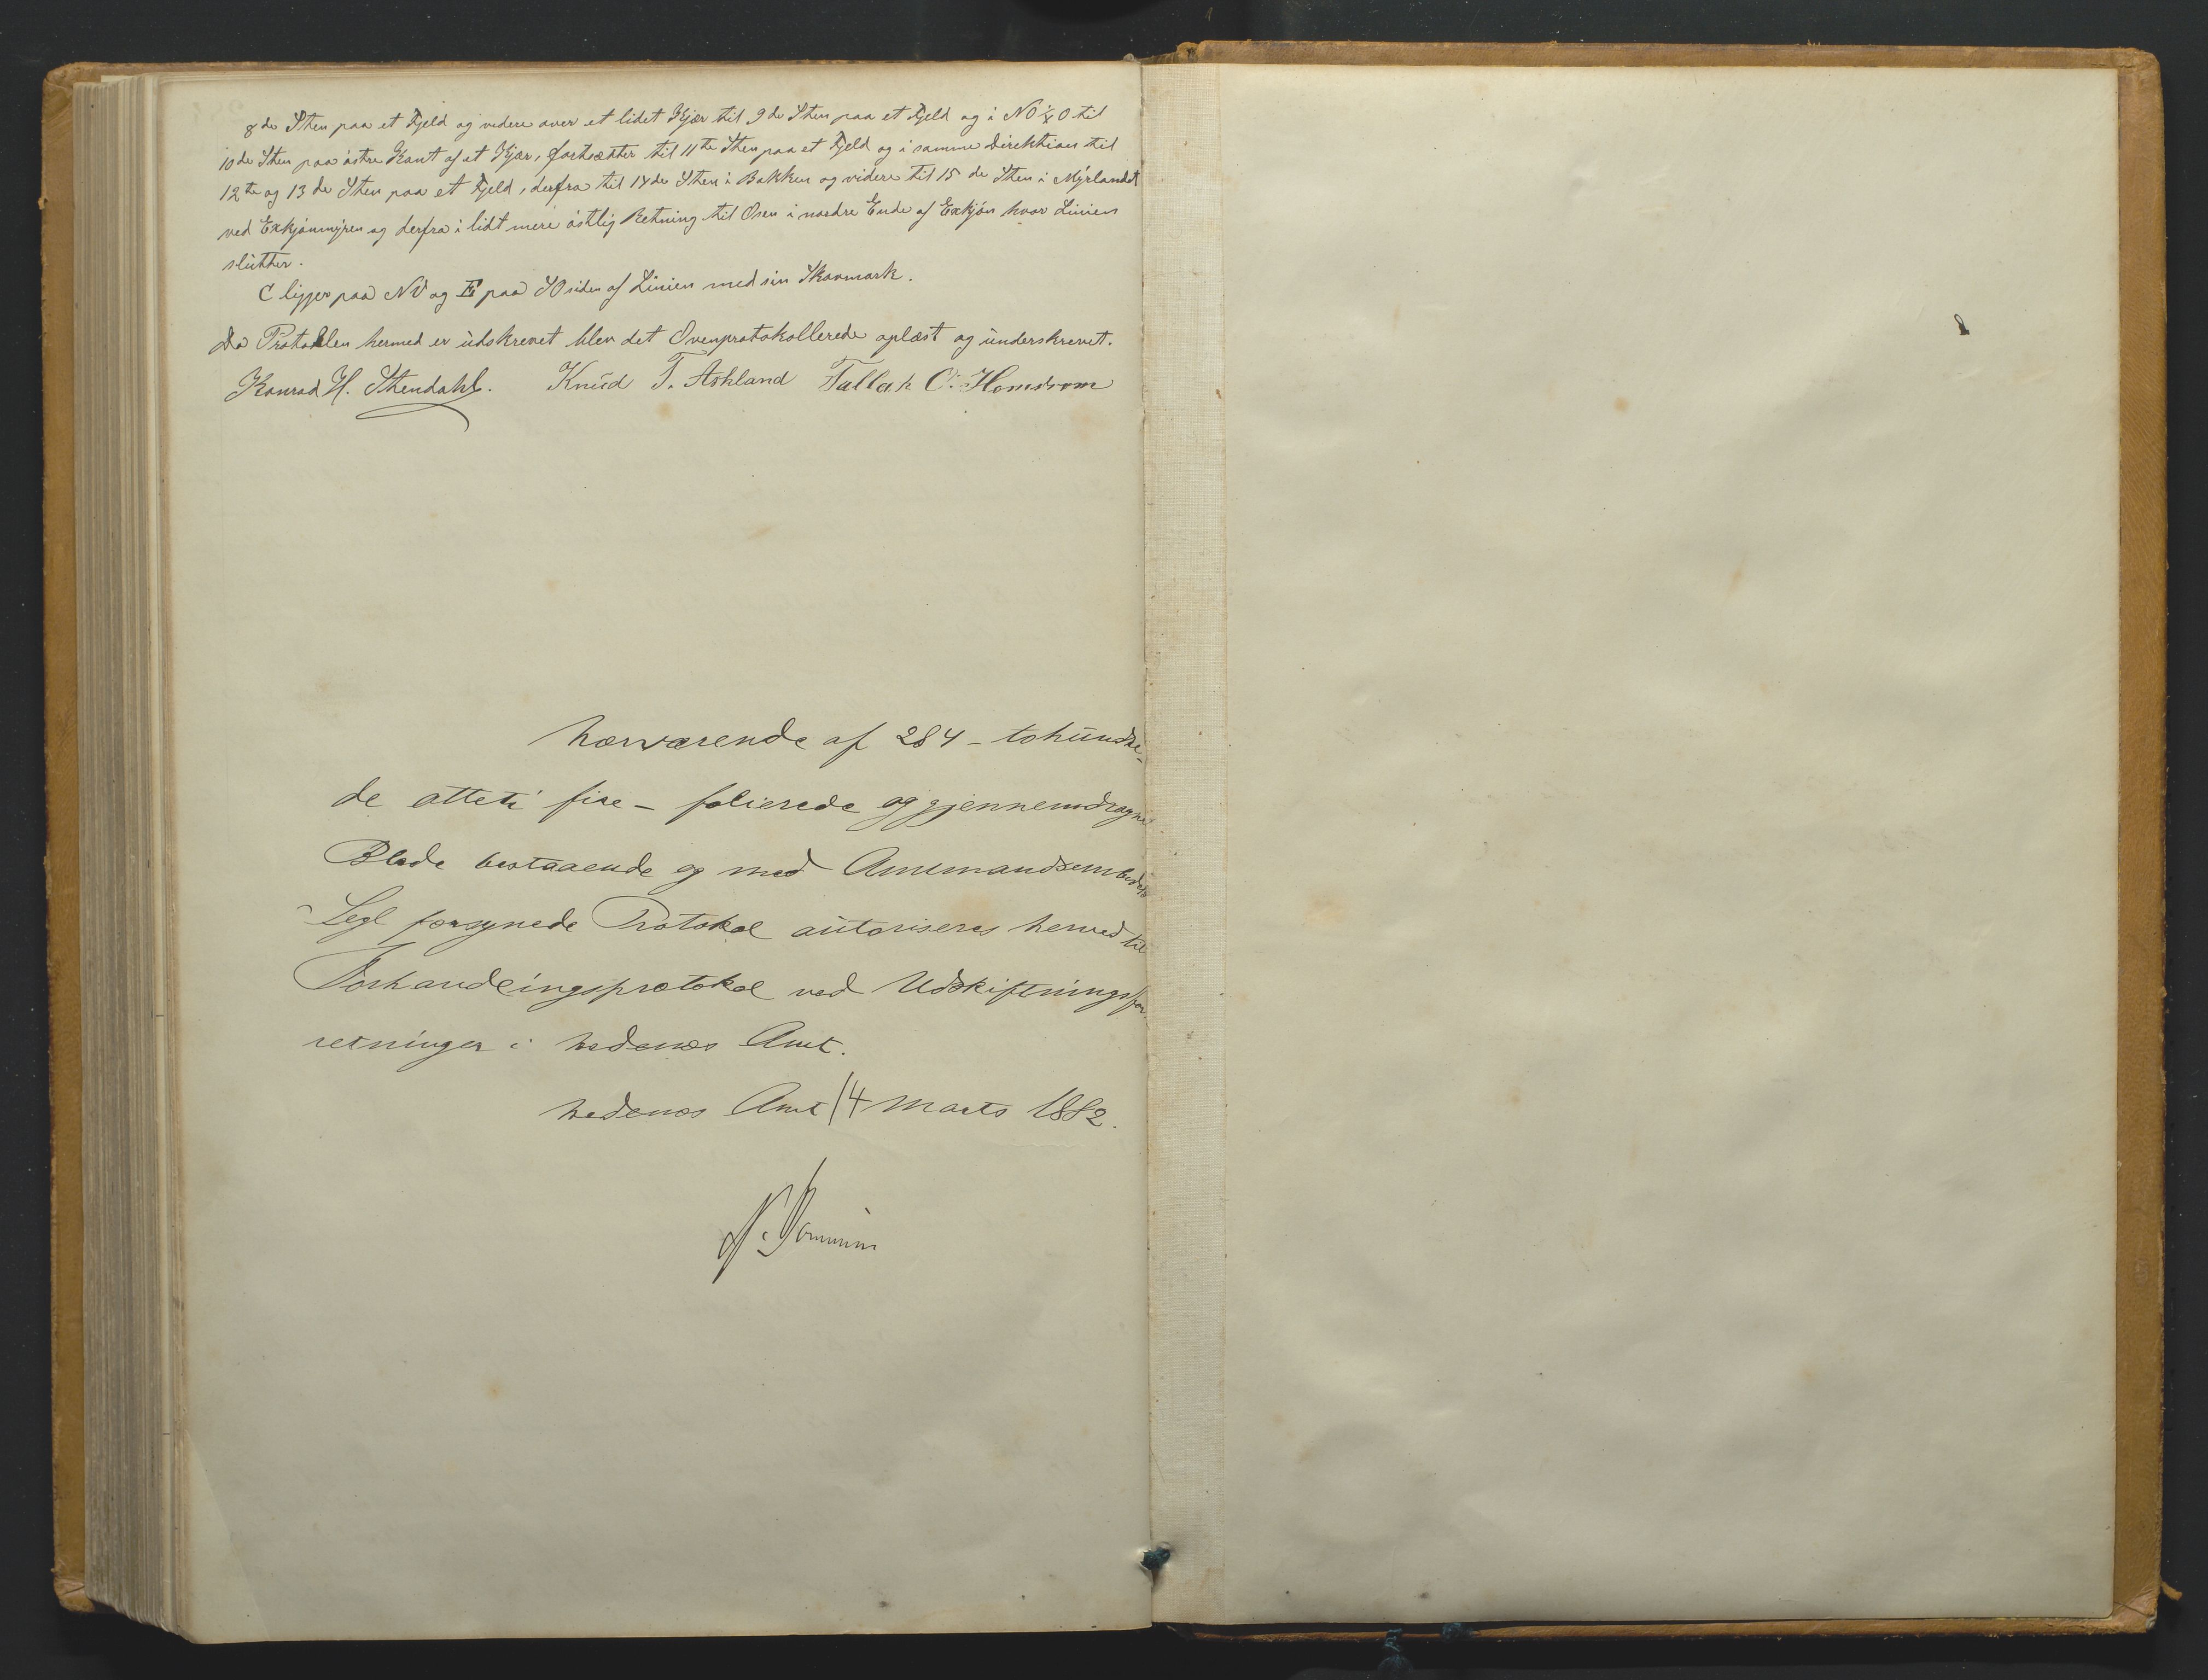 8de Sten paa et Fjeld og videre over et lidet Kjær til 9de Sten paa et Fjeld og i NO t O til
10de Sten paa østre Kant af et Kjær, fortsætter til 11te Sten paa et Fjeld og i samme Direktion til
12te og 13de Sten paa et Fjeld, derfra til 14de Sten i Bakken og videre til 15de Sten i Myrlandet
ved Exkjønmyren og derfra i lidt mere østlig Retning til Osen i nordre Ende af Exkjøn hvor Linien
slutter.
C ligger paa NV og E paa SO siden af Linien med sin Skovmark.
Da Protokollen hermed er udskrevet blev det Ovenprotokollerede oplæst og underskrevet.
Konrad H. Stendahl. Knud T. Askland Tallak O. Homdrom
Nærværende af 284 - tohundre-
de otteti fire - folierede og gjennemdragne
Blade bestaaende og med Amtmandsembedets
Segl forsynede Protokol autoriseres herved til
Forhandlingsprotokol ved Udskiftningsfor-
retninger i Nedenæs Amt.
Nedenæs Amt 14 Marts 1882.